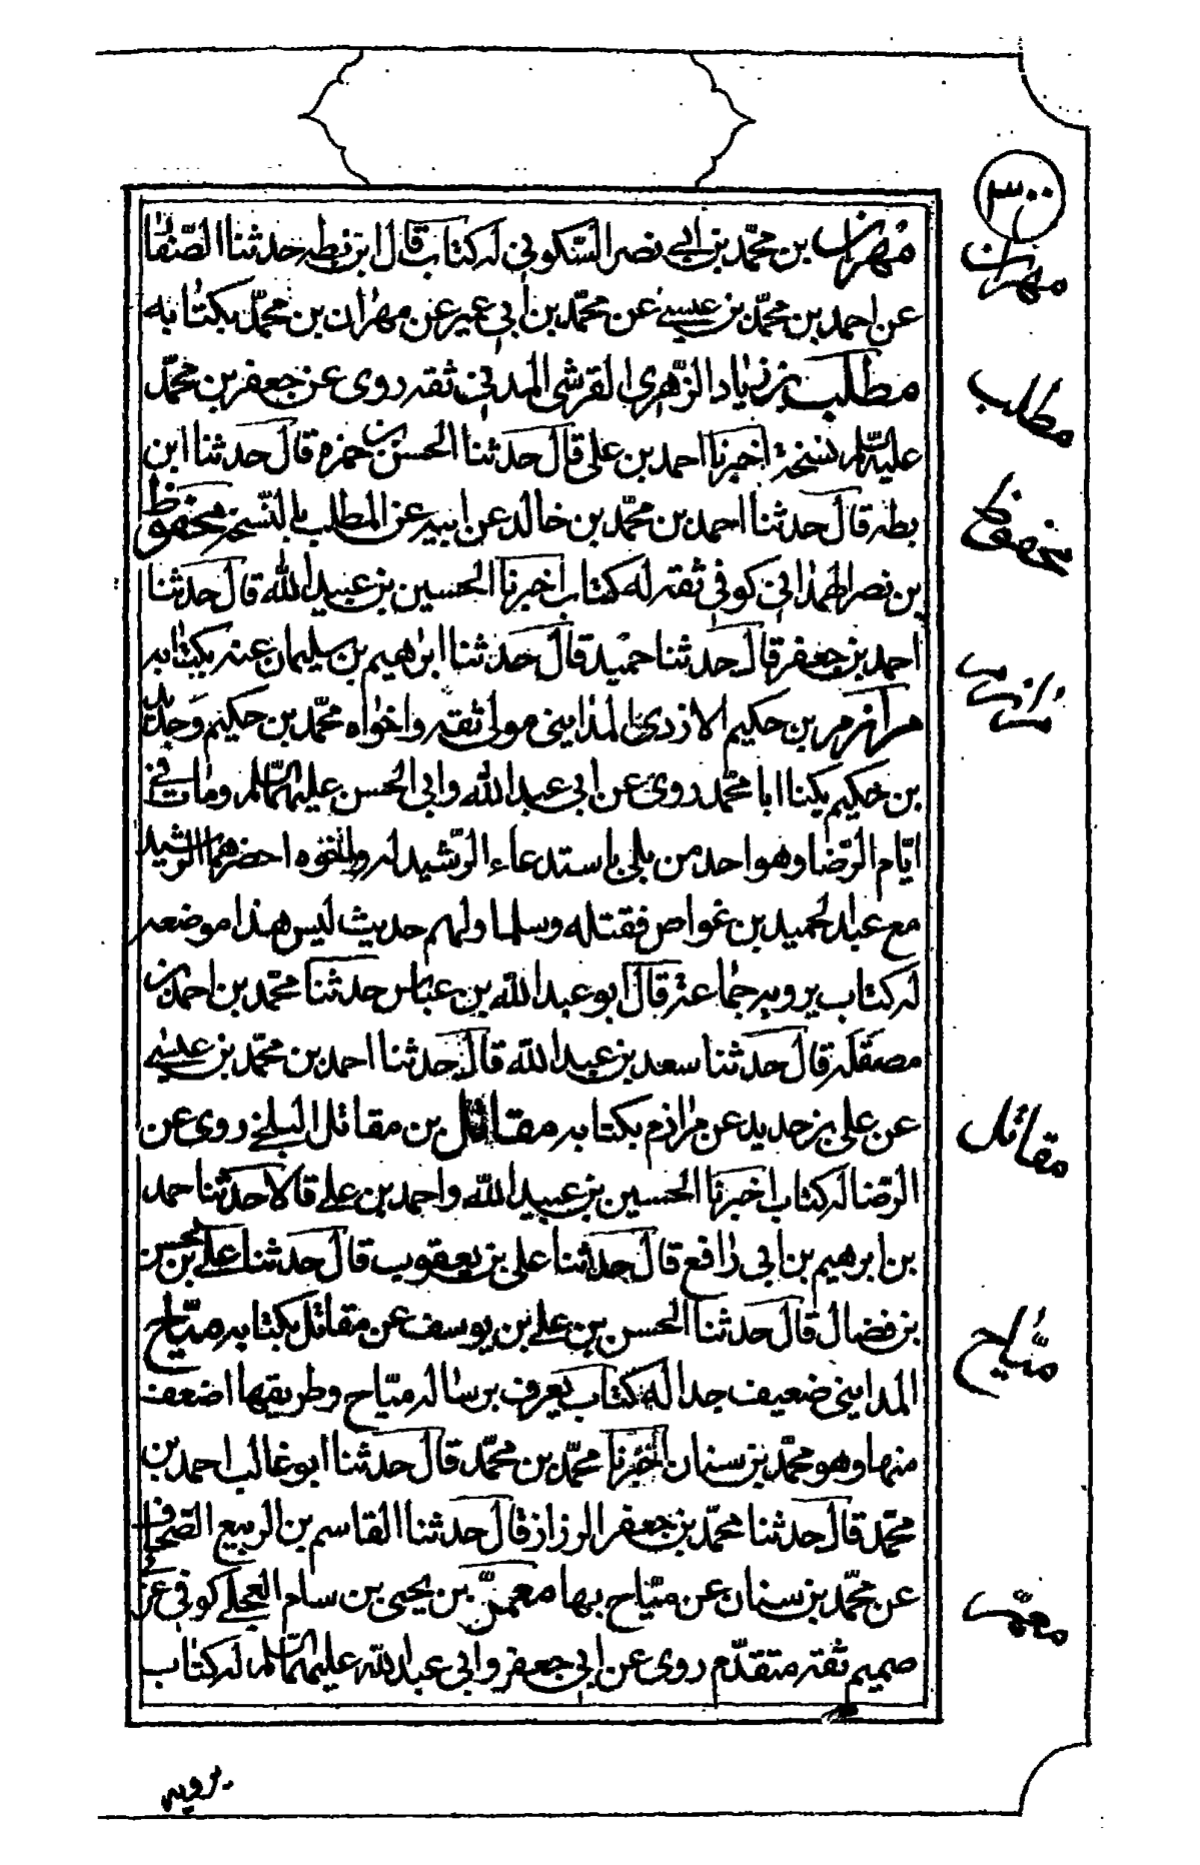 ٣٠٠
مهران بن محمّد بن ابي نصر السّكوني له كتاب قال ابن بطه حدثنا الصّفّار
عن احمد بن محمّد بن عيسى عن محمّد بن ابي عمير عن مهران بن محمّد بكتابه
مطلب بن زياد الزّهري القرشي المدني ثقه روى عن جعفر بن محمّد
عليه السّلم نسخة اخبرنا احمد بن علي قال حدثنا الحسن بن حمزه قال حدثنا ابن
بطه قال حدثنا احمد بن محمّد بن خالد عن ابيه عن المطلب بالنّسخه محفوظ
بن نصر الهمداني كوفي ثقه له كتاب اخبرنا الحسين بن عبيد الله قال حدثنا
احمد بن جعفر قال حدثنا حميد قال حدثنا ابرهيم بن سليمان عنه بكتابه
مرازم بن حكيم الازدي المدايني مولى ثقه واخواه محمّد بن حكيم وحديد
بن حكيم يكنا ابا محمّد روى عن ابي عبد الله وابي الحسن عليهما السّلم ومات في
ايّام الرّضا وهو احد من بلي باستدعاء الرّشيد له واخوه احضرهما الرّشيد
مع عبد الحميد بن غواص فقتله وسلما ولهم حديث ليس هذا موضعه
له كتاب يرويه جماعة قال ابو عبد الله بن عباس حدثنا محمّد بن احمد بن
مصقله قال حدثنا سعد بن عبد الله قال حدثنا احمد بن محمّد بن عيسى
عن علي بن حديد عن مرازم بكتابه مقاتل بن مقاتل البلخي روى عن
الرّضا له كتاب اخبرنا الحسين بن عبيد الله واحمد بن علي قالا حدثنا حمد
بن ابرهيم بن ابي رافع قال حدثنا علي بن يعقوب قال حدثنا علي بن الحسن
بن فضال قال حدثنا الحسن بن علي بن يوسف عن مقاتل بكتابه ميّاح
المدايني ضعيف جدا له كتاب يعرف برساله ميّاح وطريقها اضعف
منها وهو محمّد بن سنان اخبرنا محمّد بن محمّد قال حدثنا ابو غالب احمد بن
محمّد قال حدثنا محمّد بن جعفر الرزاز قال حدثنا القاسم بن الربيع الصّحاف
عن محمّد بن سنان عن ميّاح بها معمّر بن يحيى بن سام العجلي كوفي عربي
صميم ثقه متقدّم روى عن ابي جعفر وابي عبد الله عليهما السّلم له كتاب
مهران
مطلب
محفوظ
مرازم
مقاتل
ميّاح
معمّر
يرويه